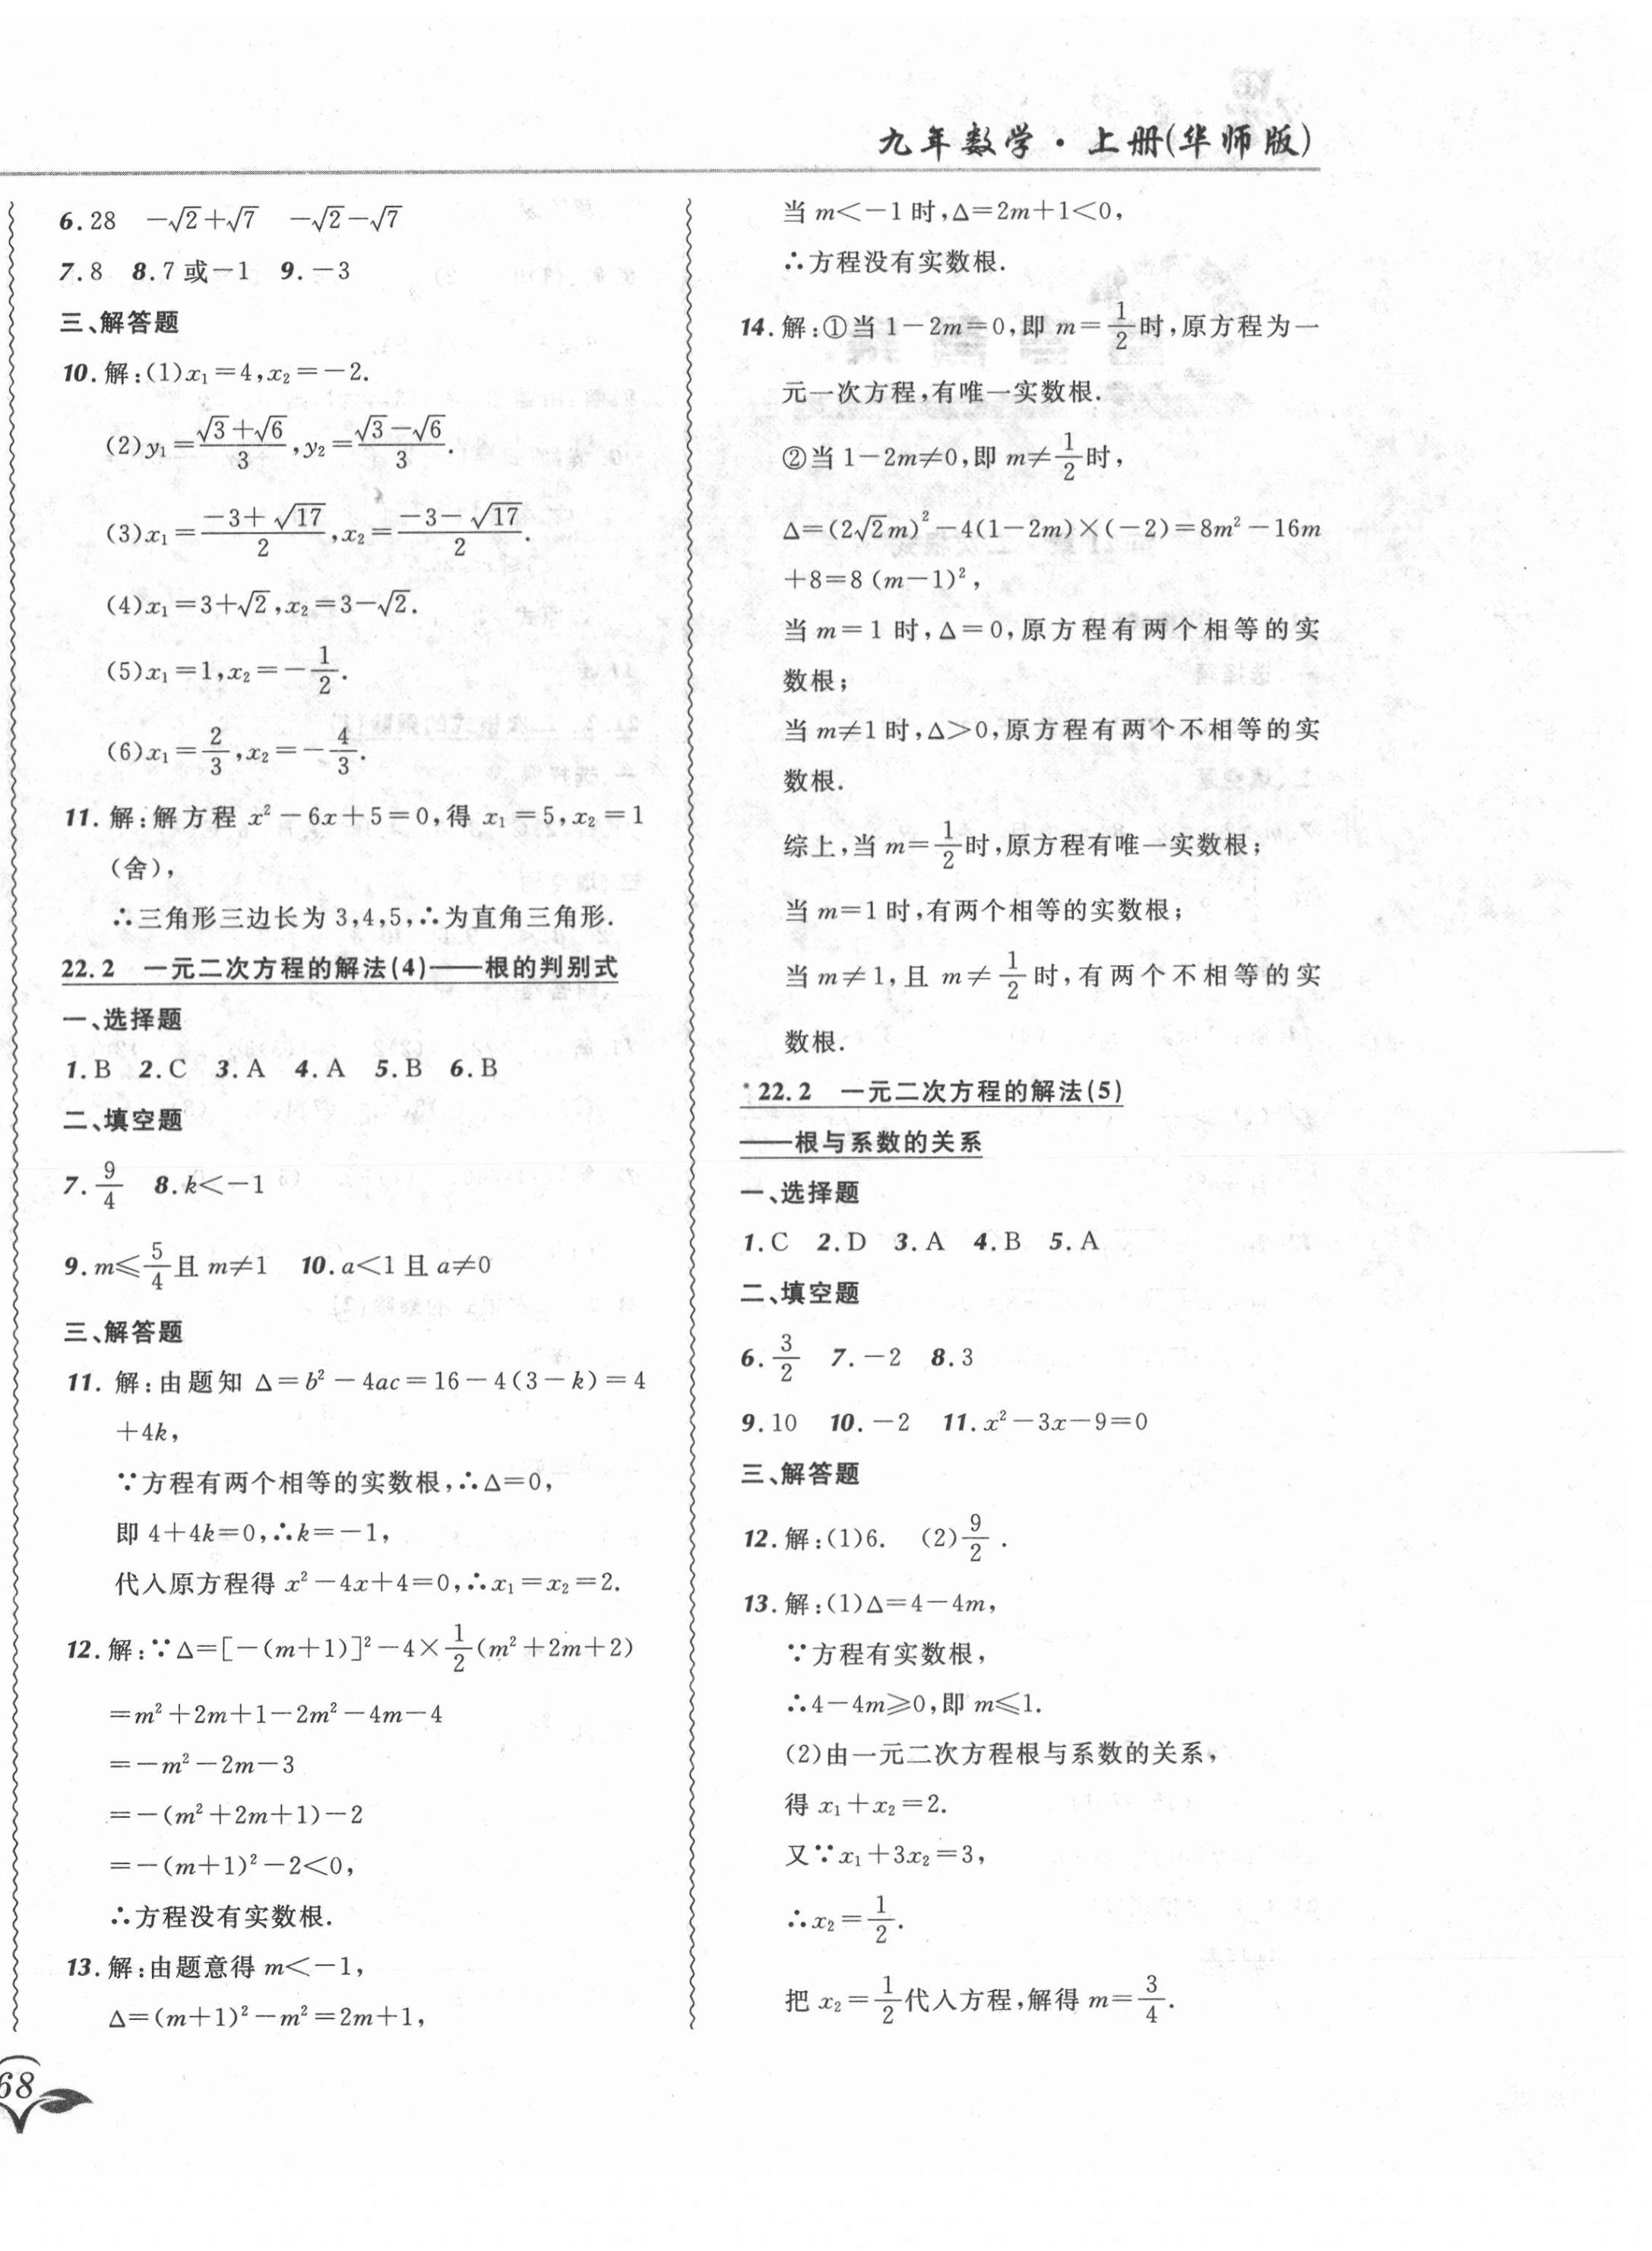 九年数学·上册(华师版)
6.28　-√2+√7　-√2-√7
7.8　8.7或-1　9.-3
三、解答题
10.解:(1)x₁=4,x₂=-2.
(2)y₁=(√3+√6)/3,y₂=(√3-√6)/3.
(3)x₁=(-3+√17)/2,x₂=(-3-√17)/2.
(4)x₁=3+√2,x₂=3-√2.
(5)x₁=1,x₂=-1/2.
(6)x₁=2/3,x₂=-4/3.
11.解:解方程 x²-6x+5=0,得 x₁=5,x₂=1
(舍),
∴三角形三边长为3,4,5,∴为直角三角形.
22.2　一元二次方程的解法(4)——根的判别式
一、选择题
1.B　2.C　3.A　4.A　5.B　6.B
二、填空题
7.9/4　8.k<-1
9.m≤5/4且 m≠1　10.a<1且 a≠0
三、解答题
11.解:由题知 Δ=b²-4ac=16-4(3-k)=4
+4k,
∵方程有两个相等的实数根,∴Δ=0,
即4+4k=0,∴k=-1,
代入原方程得 x²-4x+4=0,∴x₁=x₂=2.
12.解:∵Δ=[-(m+1)]²-4×1/2(m²+2m+2)
=m²+2m+1-2m²-4m-4
=-m²-2m-3
=-(m²+2m+1)-2
=-(m+1)²-2<0,
∴方程没有实数根.
13.解:由题意得 m<-1,
Δ=(m+1)²-m²=2m+1,
68
当 m<-1时,Δ=2m+1<0,
∴方程没有实数根.
14.解:①当1-2m=0,即 m=1/2时,原方程为一
元一次方程,有唯一实数根.
②当1-2m≠0,即 m≠1/2时,
Δ=(2√2m)²-4(1-2m)×(-2)=8m²-16m
+8=8(m-1)²,
当 m=1时,Δ=0,原方程有两个相等的实
数根;
当 m≠1时,Δ>0,原方程有两个不相等的实
数根.
综上,当 m=1/2时,原方程有唯一实数根;
当 m=1时,有两个相等的实数根;
当 m≠1,且 m≠1/2时,有两个不相等的实
数根.
*22.2　一元二次方程的解法(5)
——根与系数的关系
一、选择题
1.C　2.D　3.A　4.B　5.A
二、填空题
6.3/2　7.-2　8.3
9.10　10.-2　11.x²-3x-9=0
三、解答题
12.解:(1)6.　(2)9/2.
13.解:(1)Δ=4-4m,
∵方程有实数根,
∴4-4m≥0,即 m≤1.
(2)由一元二次方程根与系数的关系,
得 x₁+x₂=2.
又∵x₁+3x₂=3,
∴x₂=1/2.
把 x₂=1/2代入方程,解得 m=3/4.